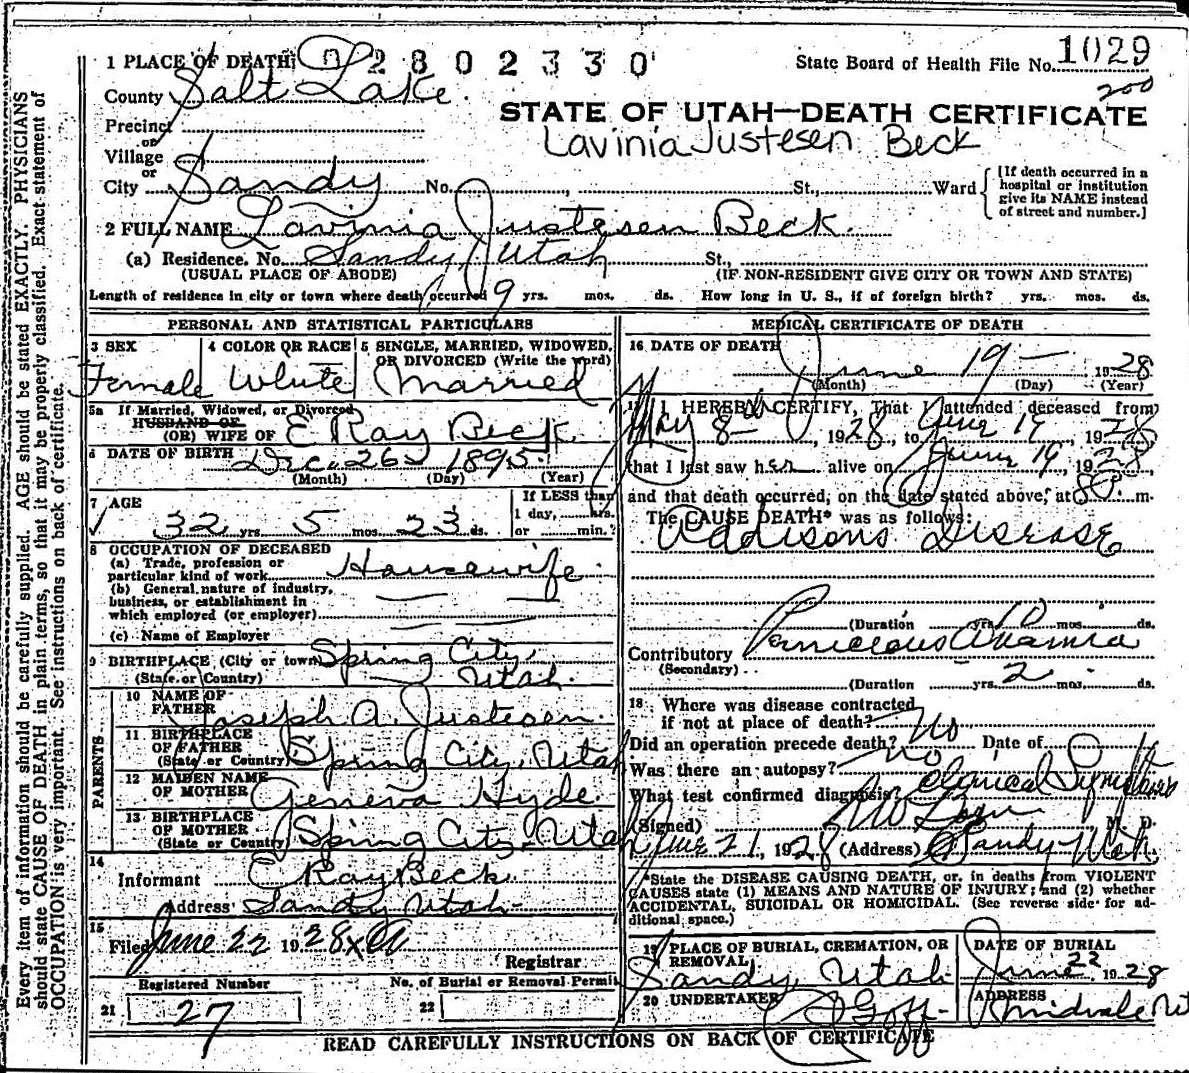 1 PLACE OF DEATH 0 2 8 0 2 3 3 0
State Board of Health File No. 1029
200
County Salt Lake
STATE OF UTAH—DEATH CERTIFICATE
Precinct
or
Lavinia Justesen Beck
Village
or
City Sandy No. , St., Ward
[If death occurred in a hospital or institution give its NAME instead of street and number.]
2 FULL NAME Lavinia Justesen Beck
(a) Residence. No. Sandy, Utah St.,
(USUAL PLACE OF ABODE) (IF NON-RESIDENT GIVE CITY OR TOWN AND STATE)
Length of residence in city or town where death occurred 9 yrs. mos. ds. How long in U. S., if of foreign birth? yrs. mos. ds.
PERSONAL AND STATISTICAL PARTICULARS
3 SEX
Female
4 COLOR OR RACE
White
5 SINGLE, MARRIED, WIDOWED,
OR DIVORCED (Write the word)
Married
5a If Married, Widowed, or Divorced
HUSBAND OF
(OR) WIFE OF E Ray Beck
6 DATE OF BIRTH Dec. 26 1895
(Month) (Day) (Year)
7 AGE
32 yrs 5 mos 23 ds.
If LESS than
1 day, hrs.
or min.
8 OCCUPATION OF DECEASED
(a) Trade, profession or
particular kind of work Housewife
(b) General nature of industry,
business, or establishment in
which employed (or employer)
(c) Name of Employer
9 BIRTHPLACE (City or town) Spring City,
(State or Country) Utah.
PARENTS
10 NAME OF
FATHER Joseph A. Justesen
11 BIRTHPLACE
OF FATHER
(State or Country) Spring City, Utah
12 MAIDEN NAME
OF MOTHER Geneva Hyde
13 BIRTHPLACE
OF MOTHER
(State or Country) Spring City, Utah
14
Informant E Ray Beck
Address Sandy Utah
15
Filed June 22 1928
Registrar
Registered Number
21 27
No. of Burial or Removal Permit
22
MEDICAL CERTIFICATE OF DEATH
16 DATE OF DEATH June 19 — 1928
(Month) (Day) (Year)
17 I HEREBY CERTIFY, That I attended deceased from
May 8th, 1928, to June 19, 1928
that I last saw her alive on June 19, 1928,
and that death occurred, on the date stated above, at 8 m.
The CAUSE DEATH* was as follows:
Addisons Disease
(Duration yrs 10 mos. ds.
Contributory Pernicious Anamia
(Secondary)
(Duration yrs. 2 mos ds.
18 Where was disease contracted
if not at place of death?
Did an operation precede death? No Date of
Was there an autopsy? No
What test confirmed diagnosis? Clinical Symptoms
(Signed) M. D.
June 21, 1928 (Address) Sandy Utah
*State the DISEASE CAUSING DEATH, or, in deaths from VIOLENT
CAUSES state (1) MEANS AND NATURE OF INJURY; and (2) whether
ACCIDENTAL, SUICIDAL OR HOMICIDAL. (See reverse side for ad-
ditional space.)
19 PLACE OF BURIAL, CREMATION, OR
REMOVAL
Sandy, Utah
DATE OF BURIAL
June 22 1928
20 UNDERTAKER
Goff
ADDRESS
Midvale Ut
READ CAREFULLY INSTRUCTIONS ON BACK OF CERTIFICATE
Every item of information should be carefully supplied. AGE should be stated EXACTLY. PHYSICIANS
should state CAUSE OF DEATH in plain terms, so that it may be properly classified. Exact statement of
OCCUPATION is very important. See instructions on back of certificate.